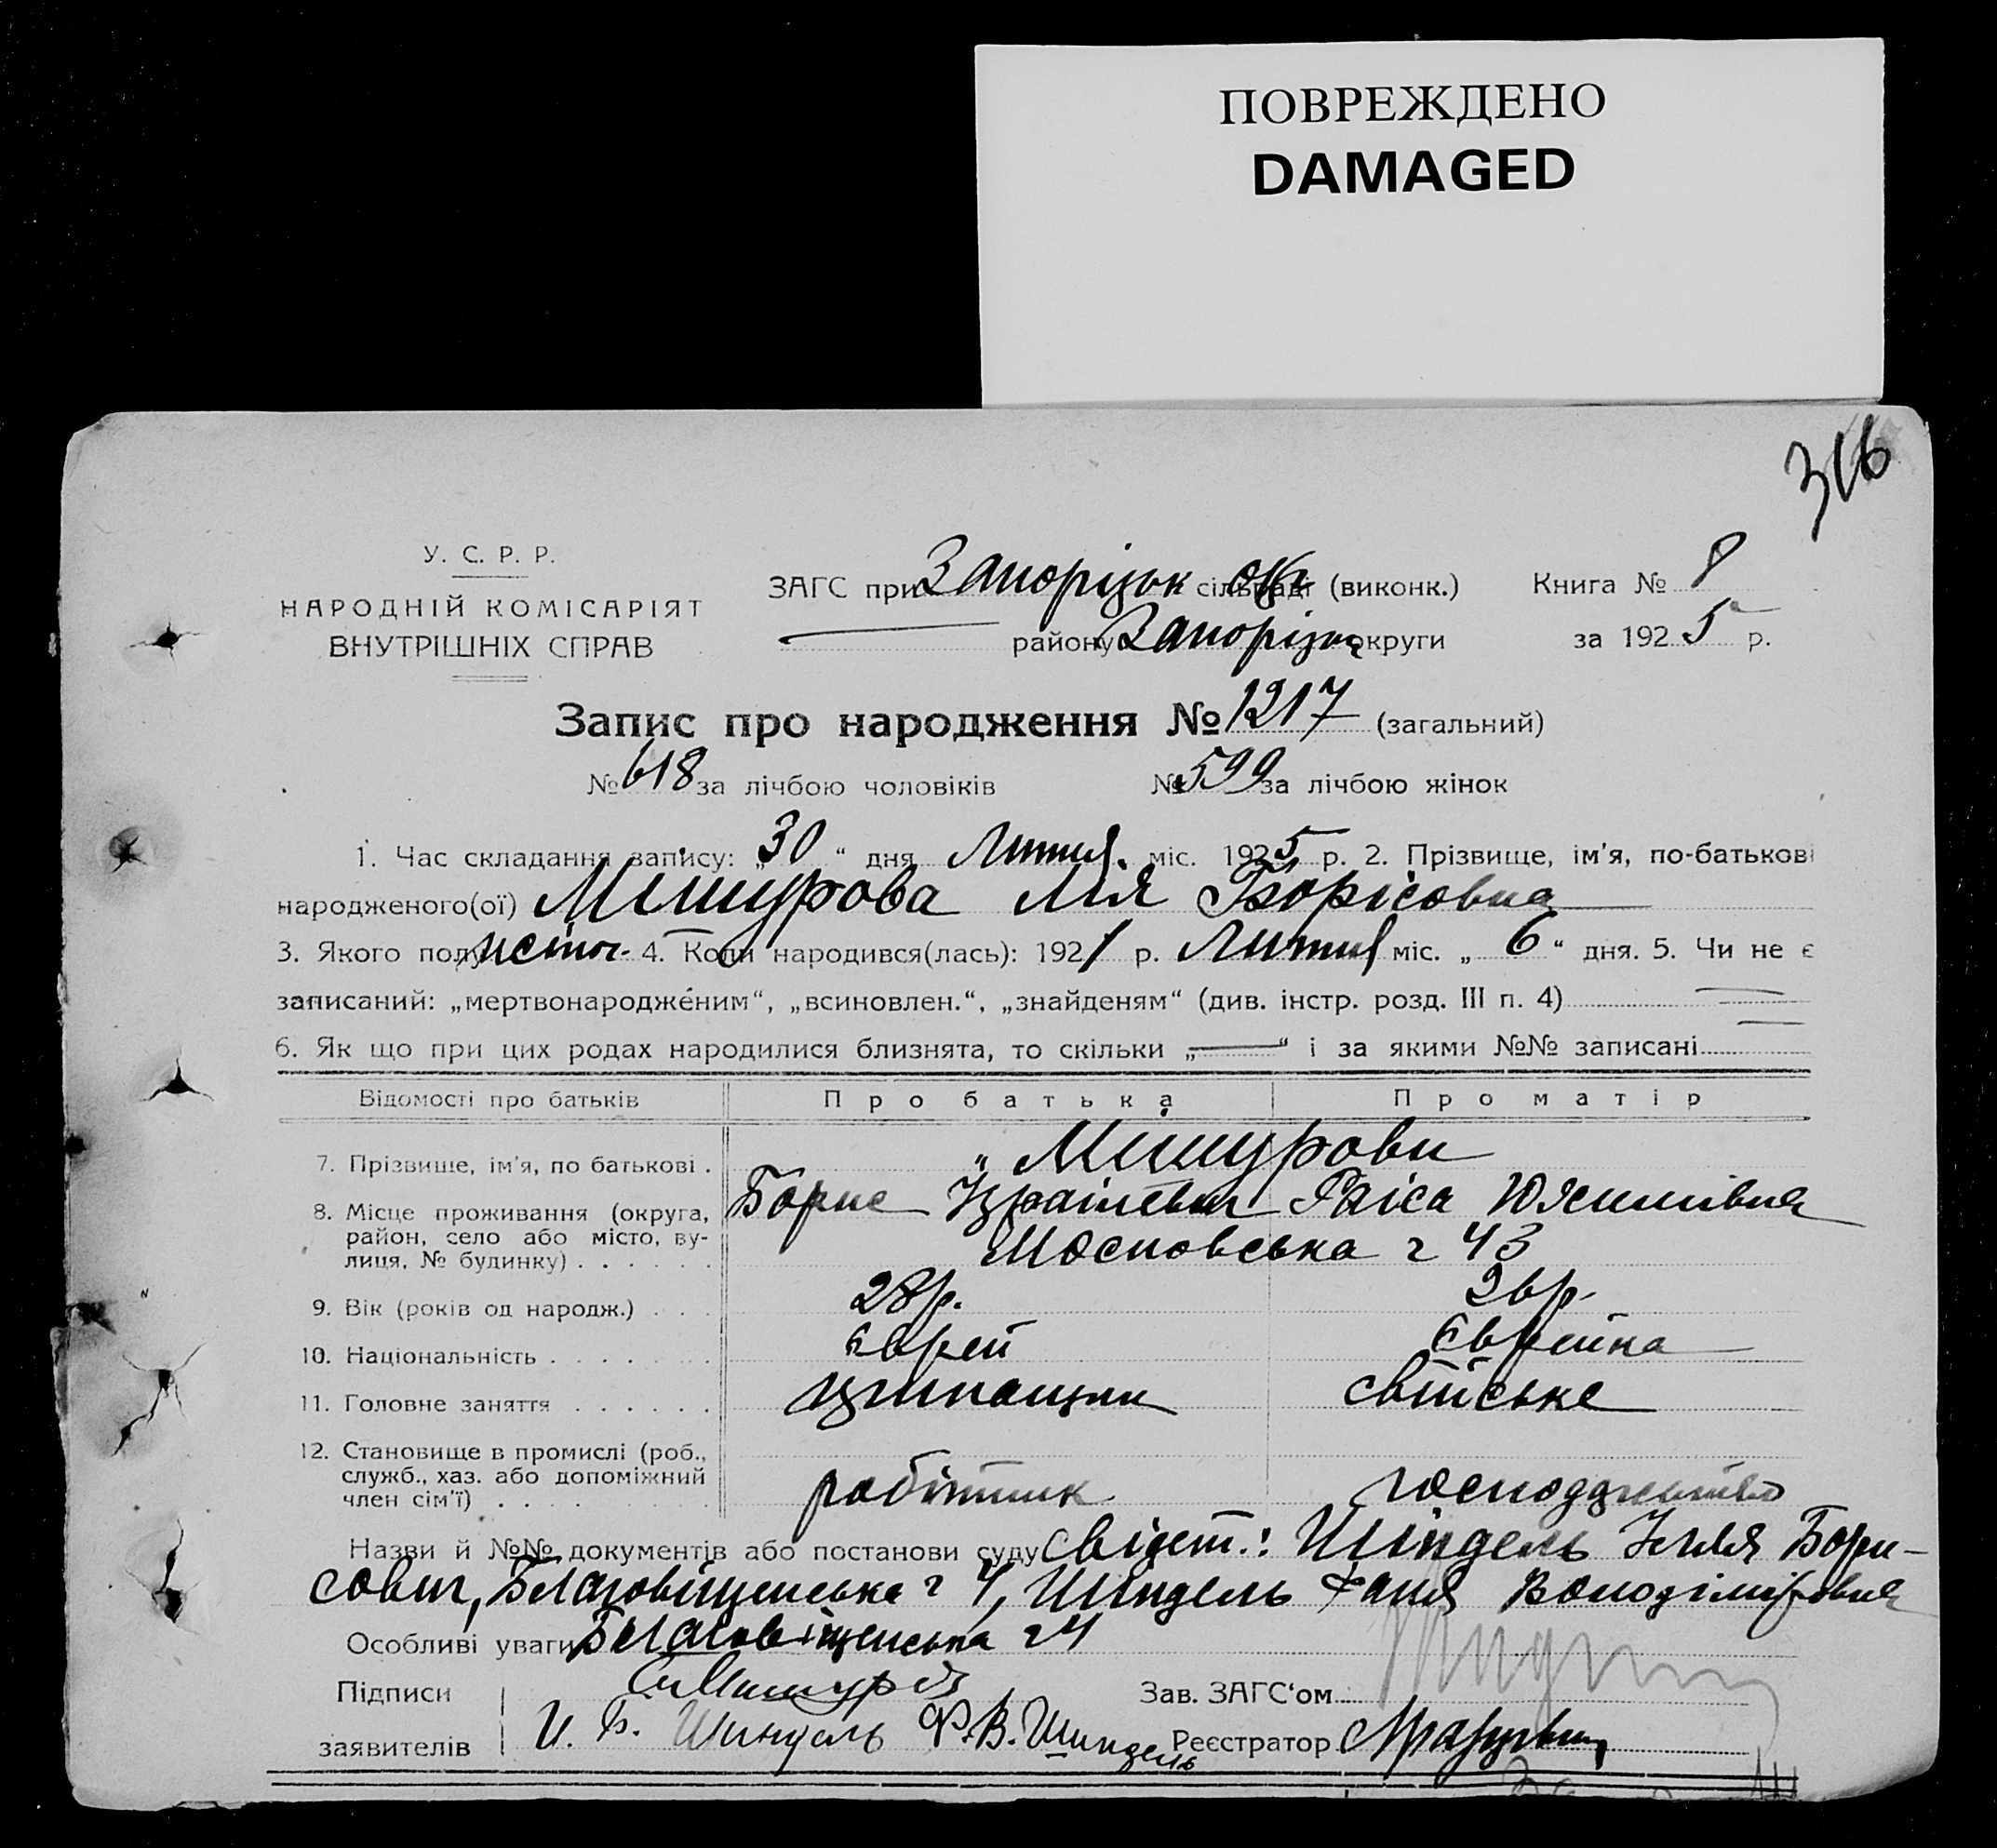 ПОВРЕЖДЕНО
DAMAGED
316
У. С. Р. Р.
НАРОДНІЙ КОМІСАРІЯТ
ВНУТРІШНІХ СПРАВ
ЗАГС при Запорізьк сільраді окр (виконк.) Книга № 8
району Запорізьк округи за 1925 р.
Запис про народження № 1217 (загальний)
№ 618 за лічбою чоловіків № 599 за лічбою жінок
1. Час складання запису: „30“ дня Липня міс. 1925 р. 2. Прізвище, ім'я, по-батькові
народженого(ої) Мішурова Лія Борісовна
3. Якого полу жіноч. 4. Коли народився(лась): 1921 р. Липня міс. „6“ дня. 5. Чи не є
записаний: „мертвонародженим“, „всиновлен.“, „знайденям“ (див. інстр. розд. III п. 4)
6. Як що при цих родах народилися близнята, то скільки „—“ і за якими №№ записані
Відомості про батьків Про батька Про матір
7. Прізвище, ім'я, по батькові . Мішурови
Борис Ізраілевич Раіса Юхимівна
8. Місце проживання (округа,
район, село або місто, вулиця, № будинку) . . . . . . Московська ч 43
9. Вік (років од народж.) . . . 28р. 26р.
10. Національність . . . . . . . єврей Єврейка
11. Головне заняття . . . . . . свійське
12. Становище в промислі (роб.,
служб., хаз. або допоміжний
член сім'ї) . . . . робітник господарство
Назви й №№ документів або постанови суду Свідет.: Шіндель Ілля Бори-
сович, Благовіщенська ч 4, Шіндель Фаня Володімировна
Особливі уваги Благовіщенська ч 4
Підписи Зав. ЗАГС‘ом
заявителів И. Б. Шиндель Ф. В. Шиндель Реєстратор